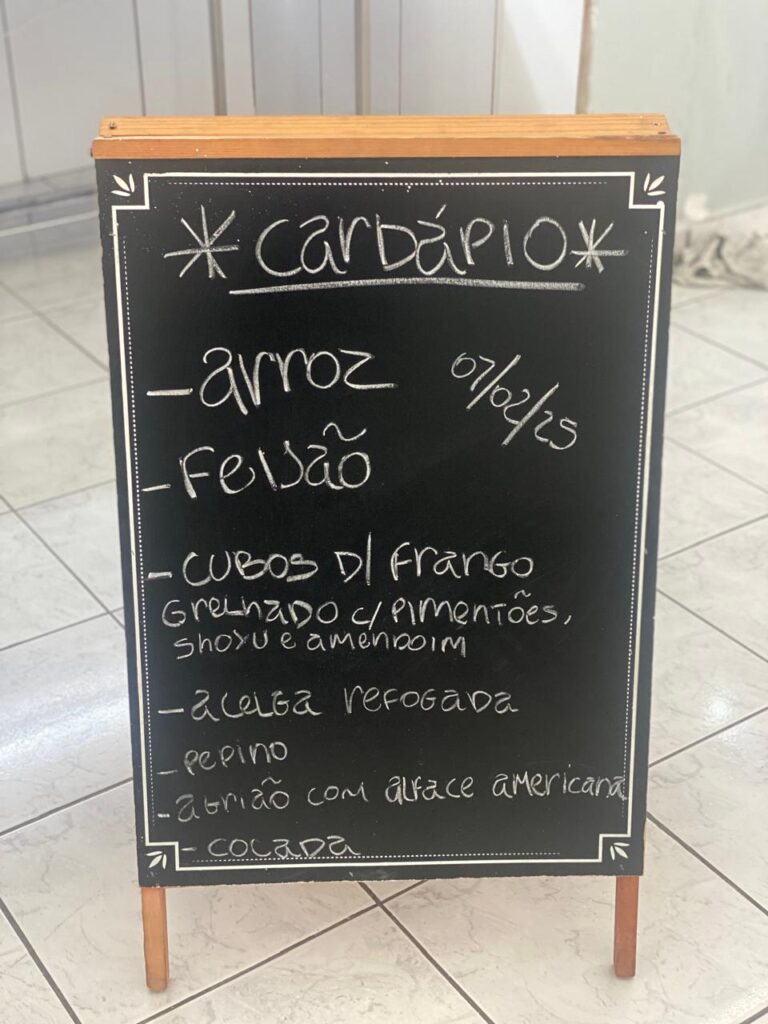 *CARDÁPIO*
- arroz
07/02/25
- Feijão
- CUBOS D/ Frango
GreLHADO C/ PIMENTÕES,
SHOYU e amendoim
- acelga refogada
- Pepino
- agrião com alface americana
- COCADA